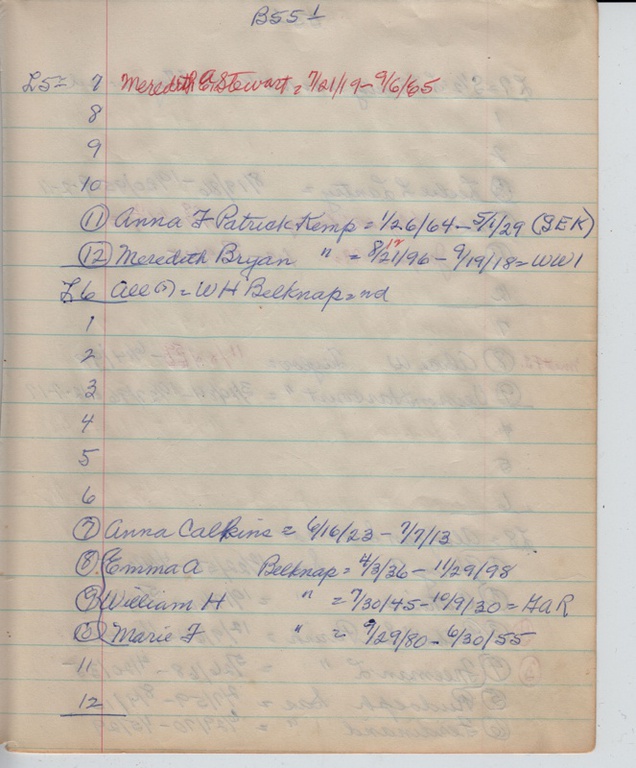 B55 1
L5= 7 Meredith A Stewart = 7/21/19 - 9/6/65
8
9
10
11 Anna F Patrick Kemp = 1/26/64 - 5/1/29 (GEK)
12 Meredith Bryan " = 8/21/96 - 9/19/18 = WW1
12
L6 All (?) = W H Belknap = nd
1
2
3
4
5
6
7 Anna Calkins = 6/16/23 - 7/7/13
8 Emma A Belknap = 4/3/36 - 11/29/98
9 William H " = 7/30/45 - 10/9/30 = GAR
10 Marie F " = 9/29/80 - 6/30/55
11
12